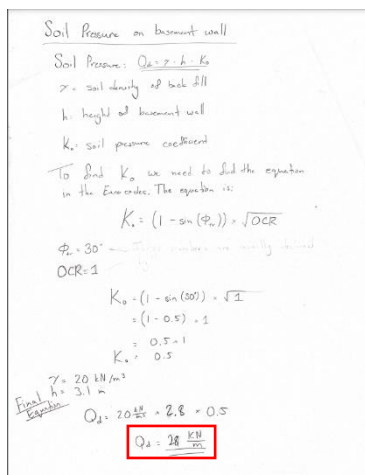 Soil Pressure on basement wall
Soil Pressure: Qd = γ · h · K₀
γ = soil density of back fill
h = height of basement wall
K₀ = soil pressure coefficient
To find K₀ we need to find the equation
in the Eurocodes. The equation is:
K₀ = (1 - sin(Φ)) × √OCR
Φ = 30°
numbers are usually
OCR = 1
K₀ = (1 - sin(30°)) × √1
= (1 - 0.5) × 1
= 0.5 × 1
K₀ = 0.5
γ = 20 kN/m³
h = 3.1 m
Final Equation
Qd = 20 kN/m³ × 2.8 × 0.5
Qd = 28 KN/m